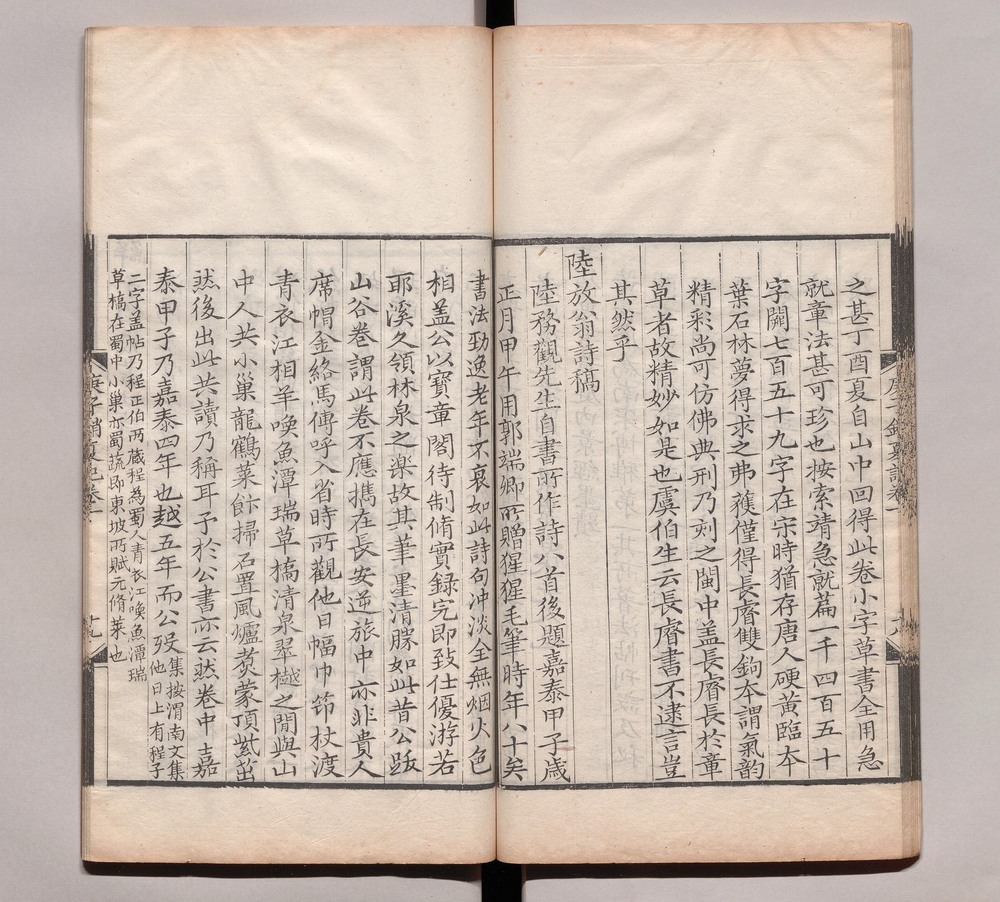 之甚丁酉夏自山中回得此卷小字草書全用急
就章法甚可珍也按索靖急就篇一千四百五十
字闕七百五十九字在宋時猶存唐人硬黃臨本
葉石林夢得求之弗獲僅得長睿雙鉤本謂氣韵
精彩尚可仿佛典刑乃刻之閩中盖長睿長於章
草者故精妙如是也虞伯生云長睿書不逮言豈
其然乎
陸放翁詩稿
陸務觀先生自書所作詩八首後題嘉泰甲子歲
正月甲午用郭端卿所贈猩猩毛筆時年八十矣
書法勁逸老年不衰如此詩句冲淡全無烟火色
相盖公以寶章閣待制脩實録完即致仕優游若
耶溪久領林泉之楽故其筆墨清勝如此昔公䟦
山谷卷謂此卷不應攜在長安逆旅中亦非貴人
席帽金絡馬傳呼入省時所觀他日幅巾笻杖渡
青衣江相羊喚魚潭瑞草橋清泉翠樾之間與山
中人共小巢龍鶴菜飰掃石置風爐煑蒙頂紫茁
然後出此共讀乃稱耳予於公書亦云然卷中嘉
泰甲子乃嘉泰四年也越五年而公歿
集按渭南文集
他日上有程子
二字盖帖乃程正伯所蔵程為蜀人青衣江喚魚潭瑞
草橋在蜀中小巢亦蜀蔬即東坡所賦元脩菜也
庚子銷夏記卷一